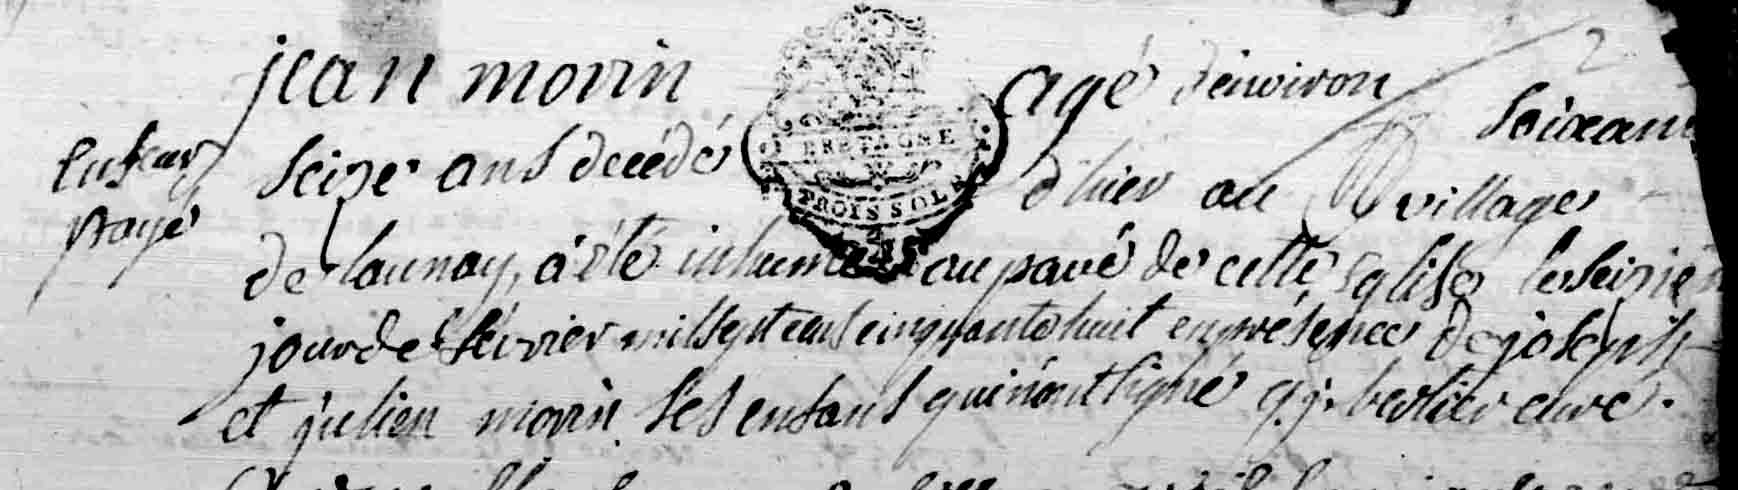 2
jean morin agé d'environ soixante
seize ans decédé d'hier au village
BRETAGNE
TROIS SOLS
payé
de launay, a été inhumé au pavé de cette Eglise le seizieme
jour de fevrier mil sept cens cinquante huit en presence de joseph
et julien morin ses enfans qui n'ont signé q. j. berlier curé.